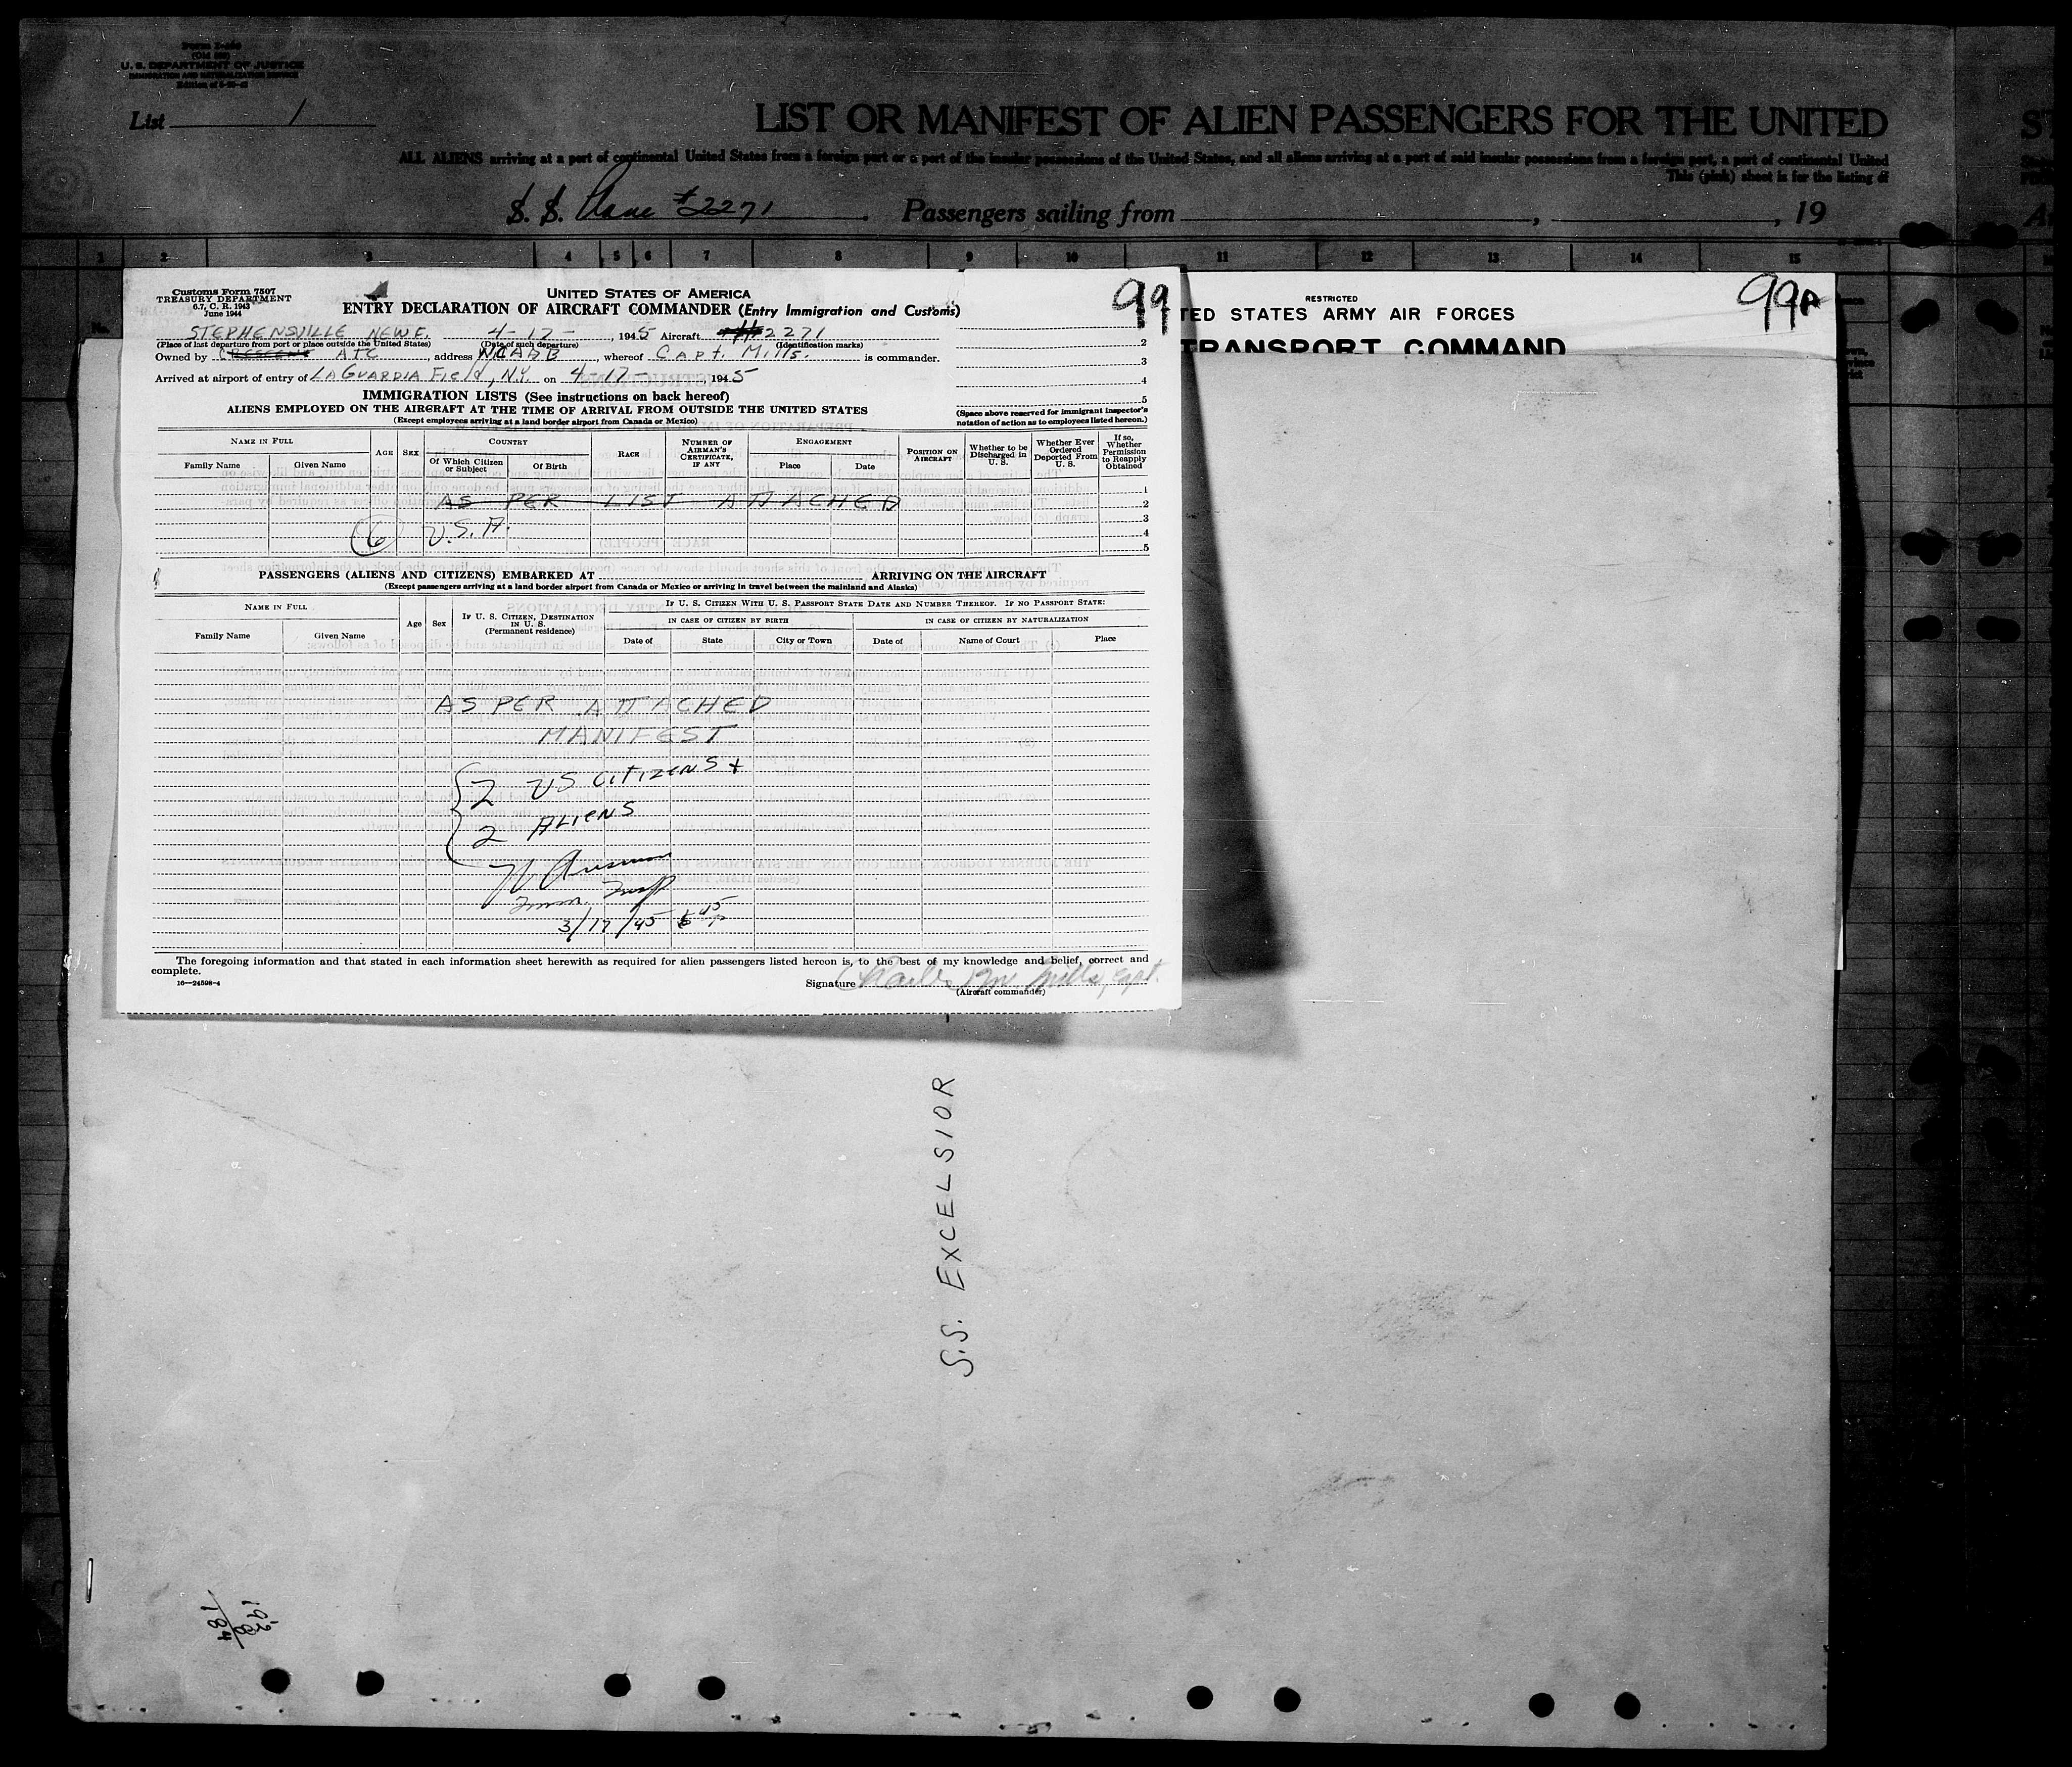 U. S. DEPARTMENT OF JUSTICE
IMMIGRATION AND NATURALIZATION SERVICE
List 1
LIST OR MANIFEST OF ALIEN PASSENGERS FOR THE UNITED
ALL ALIENS arriving at a port of continental United States from a foreign port or a port of the insular possessions of the United States, and all aliens arriving at a port of said insular possessions from a foreign port, a port of continental United
This (pink) sheet is for the listing of
S. S. Plane #2271 Passengers sailing from , , 19
1 2 3 4 5 6 7 8 9 10 11 12 13 14 15
No.
Customs Form 7507
TREASURY DEPARTMENT
6.7, C. R. 1943
June 1944
UNITED STATES OF AMERICA
ENTRY DECLARATION OF AIRCRAFT COMMANDER (Entry Immigration and Customs)
99
STEPHENSVILLE NEWF. 4-17-, 1945 Aircraft 2271
(Place of last departure from port or place outside the United States) (Date of such departure) (Identification marks)
Owned by ATC, address , whereof Capt. Mills. is commander.
Arrived at airport of entry of LA GUARDIA Field, N.Y. on 4-17-, 1945
2
3
4
5
IMMIGRATION LISTS (See instructions on back hereof)
ALIENS EMPLOYED ON THE AIRCRAFT AT THE TIME OF ARRIVAL FROM OUTSIDE THE UNITED STATES
(Except employees arriving at a land border airport from Canada or Mexico)
(Space above reserved for immigrant inspector's
notation of action as to employees listed hereon.)
NAME IN FULL
Family Name Given Name
AGE SEX
COUNTRY
Of Which Citizen or Subject Of Birth
RACE
NUMBER OF AIRMAN'S CERTIFICATE, IF ANY
ENGAGEMENT
Place Date
POSITION ON AIRCRAFT
Whether to be Discharged in U. S.
Whether Ever Ordered Deported From U. S.
If so, Whether Permission to Reapply Obtained
1
AS PER LIST ATTACHED 2
3
6 U.S.A. 4
5
PASSENGERS (ALIENS AND CITIZENS) EMBARKED AT ARRIVING ON THE AIRCRAFT
(Except passengers arriving at a land border airport from Canada or Mexico or arriving in travel between the mainland and Alaska)
NAME IN FULL
Family Name Given Name
Age Sex
IF U. S. CITIZEN, DESTINATION IN U. S.
(Permanent residence)
IF U. S. CITIZEN WITH U. S. PASSPORT STATE DATE AND NUMBER THEREOF. IF NO PASSPORT STATE:
IN CASE OF CITIZEN BY BIRTH IN CASE OF CITIZEN BY NATURALIZATION
Date of State City or Town Date of Name of Court Place
AS PER ATTACHED
MANIFEST
2 US CITIZENS +
2 ALIENS
Imm. Insp
3/17/45 6 45 P
The foregoing information and that stated in each information sheet herewith as required for alien passengers listed hereon is, to the best of my knowledge and belief, correct and
complete.
16—24598-4
Signature Mills, Capt.
(Aircraft commander)
RESTRICTED
99A
TED STATES ARMY AIR FORCES
TRANSPORT COMMAND
S.S. EXCELSIOR